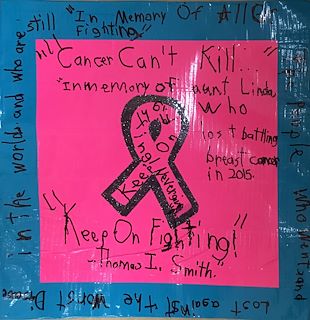 "In Memory Of All Of
The People Who Went and
Lost against the Worst Disease
in the world and who are
still Fighting."
"Cancer Can't Kill..."
"In memory of aunt Linda
who
lost battling
breast cancer
in 2015.
Keep
Fighting
"Keep On Fighting!"
"Thomas I. Smith."